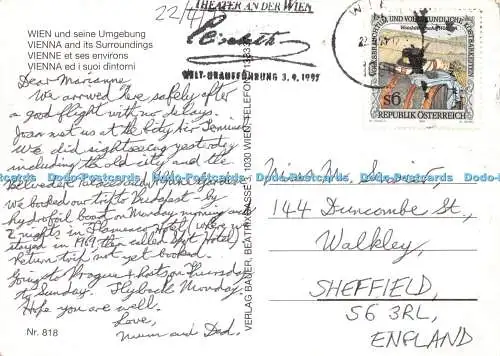 22/4
THEATER AN DER WIEN
Elisabeth
WELT-URAUFFÜHRUNG 3. 9. 1992
WIEN und seine Umgebung
VIENNA and its Surroundings
VIENNE et ses environs
VIENNA ed i suoi dintorni
Dear Marianne,
We arrived here safely after
a good flight with no delays.
Joan met us at the City Air Terminal
We did sightseeing yesterday
including the old city and the
Belvedere Palaces and
We booked our trip to Budapest - by
hydrofoil boat on Monday morning and
2 nights in Flamenco Hotel (where we
stayed in 1969 then called Hotel)
Return trip not yet booked.
Going to Prague Thursday
to Sunday. Flyback Monday.
Hope you are well.
Love,
Mum and Dad.
Nr. 818
VERLAG BAUER, BEATRIXGASSE 3, 1030 WIEN, TELEFON 713
VOLKSBRAUCHTUM UND VOLKSKUNDLICHE KOSTBARKEITEN
S6
REPUBLIK ÖSTERREICH
Miss M.
144 Duncombe St,
Walkley,
SHEFFIELD,
S6 3RL,
ENGLAND
Dodo-Postcards